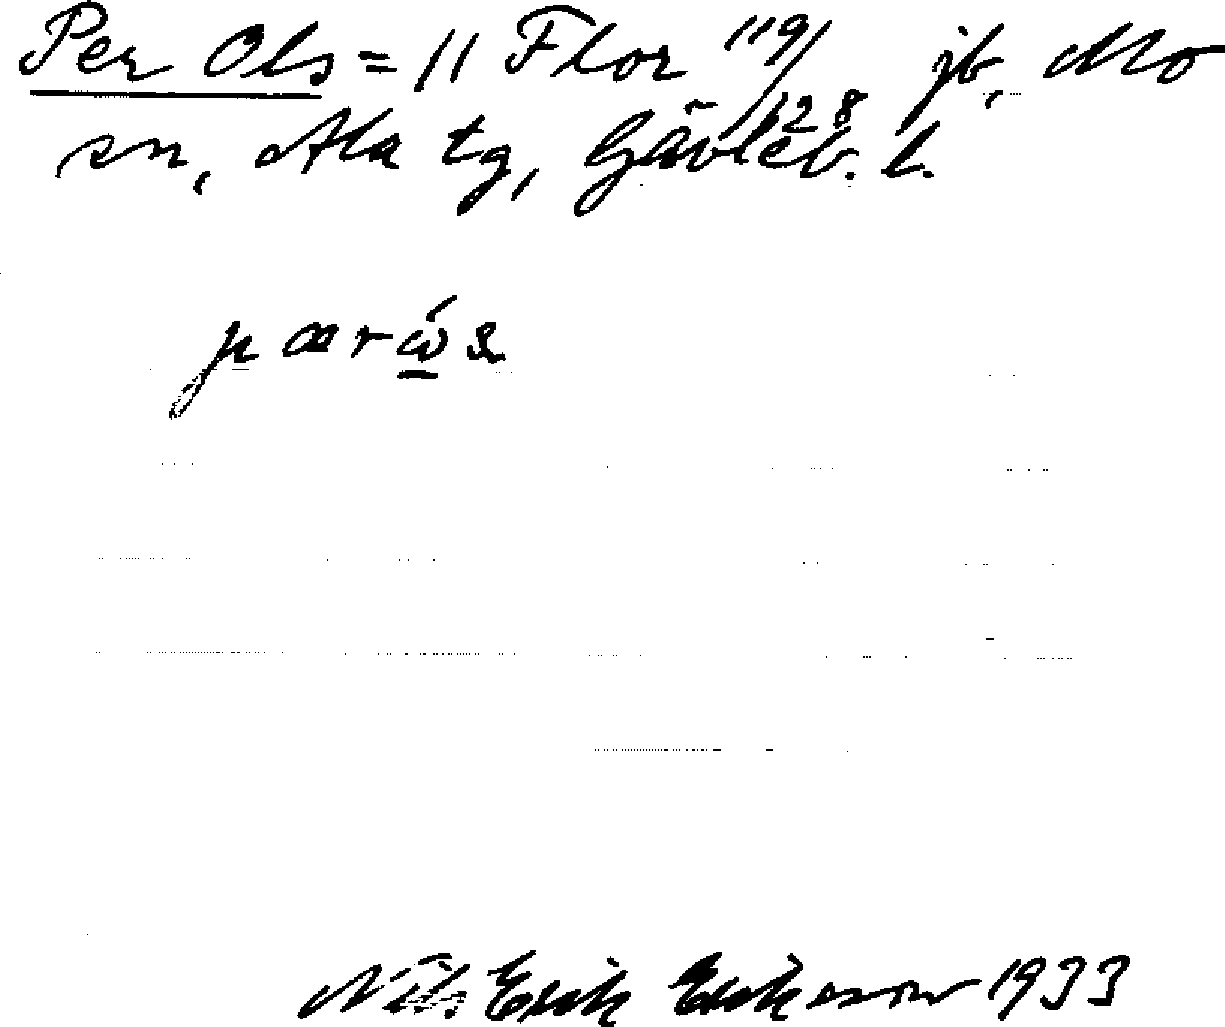 Per Ols = // Flor 119/128 jb, Mo
sn, Ala tg, Gävleb. l.
Nils Erik Eriksson 1933